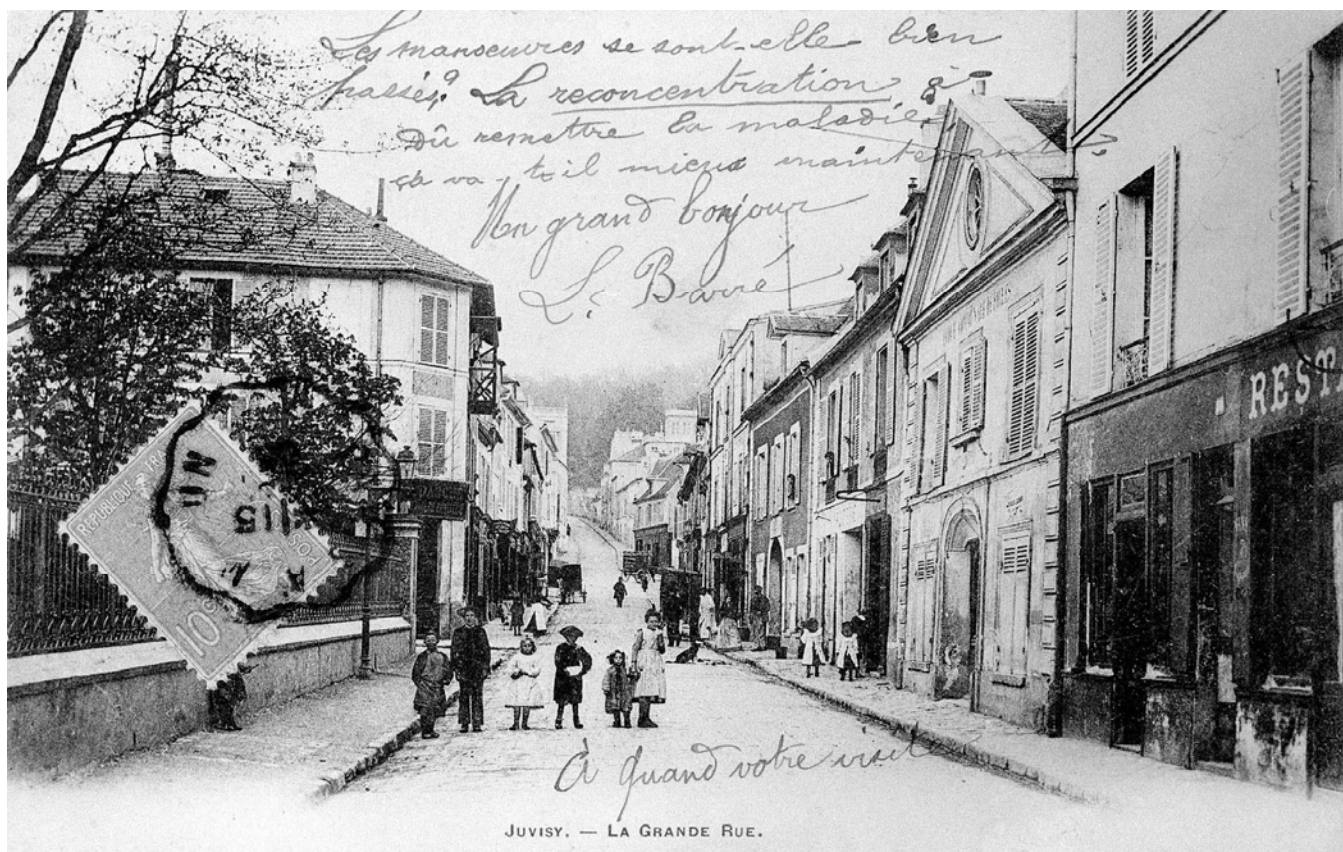 Les manoeuvres se sont-elle bien
passés? La reconcentration à
dû remettre la maladie,
ça va-t-il mieux maintenant?
Un grand bonjour
L. Barré
REST
REPUBLIQUE
POS
10c
15
À quand votre visite
JUVISY. — LA GRANDE RUE.